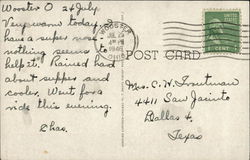 Wooster O 24 July
Very warm today
have a super nose -
nothing seems to
help it. Rained had
about supper and
cooler. Went for a
ride this evening.
Chas.
WOOSTER
JUL 25
1946
OHIO
POST CARD
1 CENT
Mrs. C. W. Troutman
4411 San Jacinto
Dallas 4,
Texas